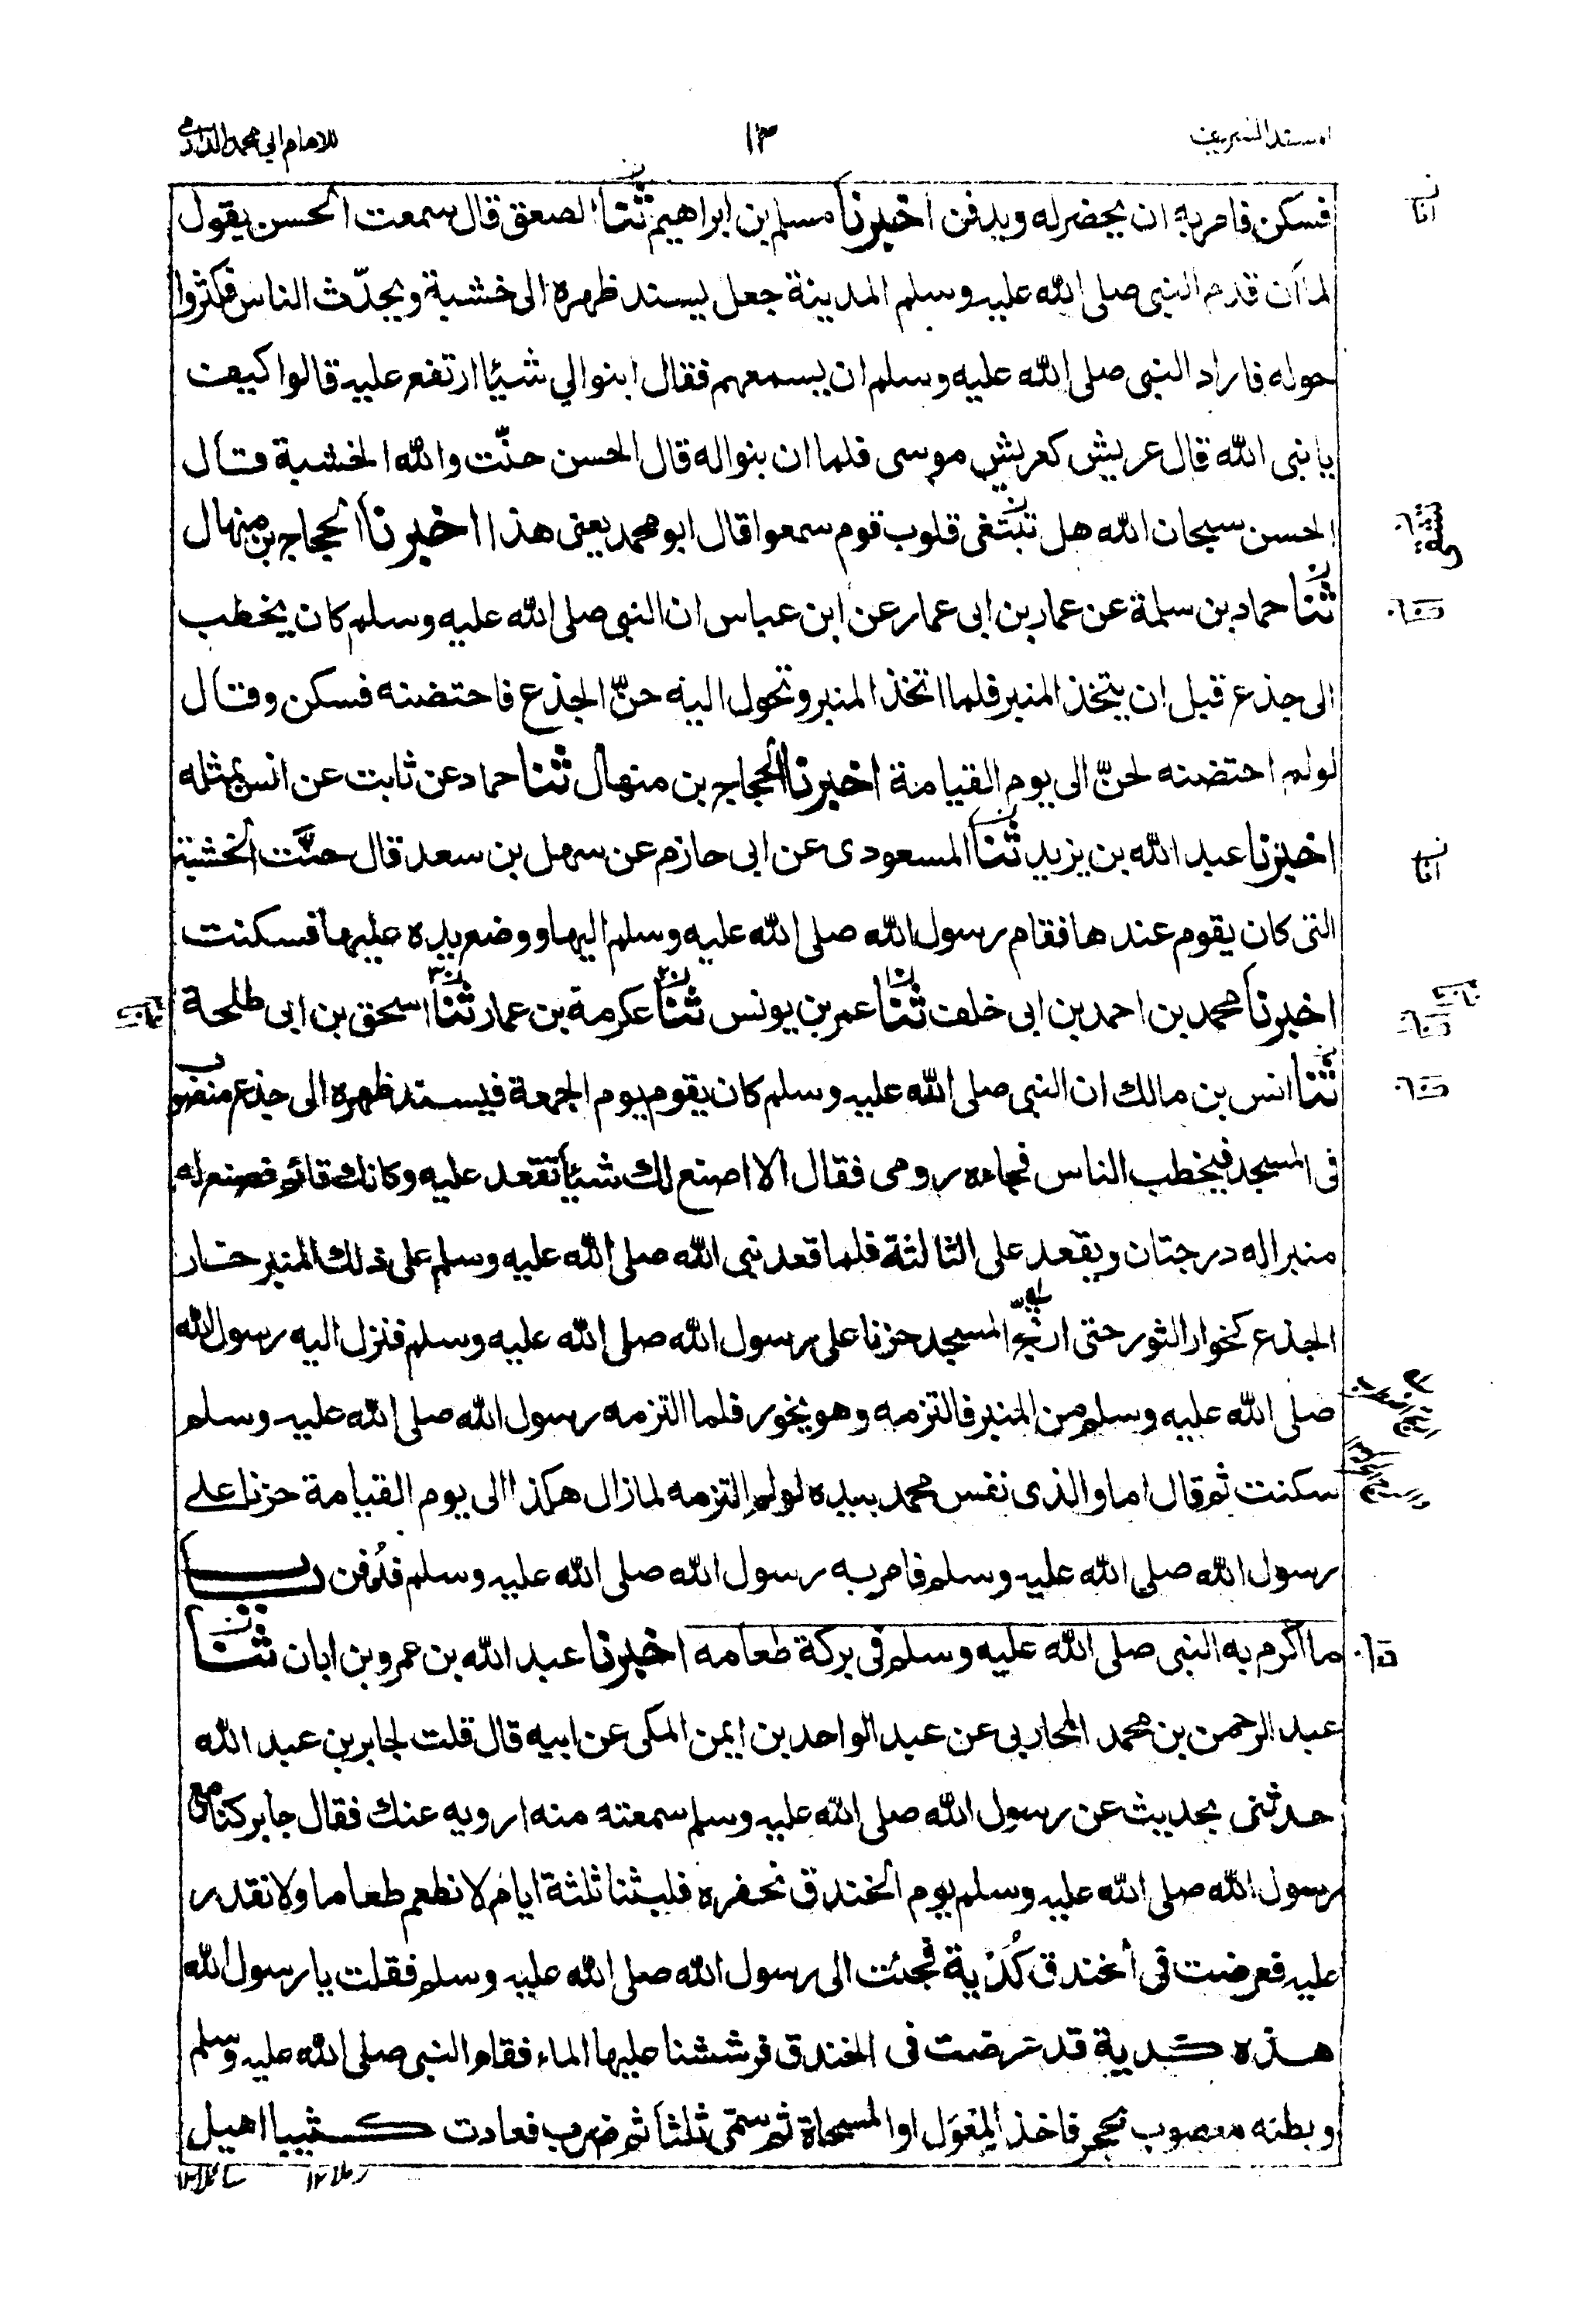 المسند الشريف
١٣
للامام ابي محمد الدارمي
فسكن فامر به ان يحضر له ويدفن اخبرنا مسلم بن ابراهيم ثنا الصعق قال سمعت الحسن يقول
لما ان قدم النبي صلى الله عليه وسلم المدينة جعل يسند ظهره الى خشبة ويحدّث الناس فكثروا
حوله فاراد النبي صلى الله عليه وسلم ان يسمعهم فقال ابنوا لي شيئا ارتفع عليه قالوا كيف
يا نبي الله قال عريش كعريش موسى فلما ان بنوا له قال الحسن حنّت والله الخشبة قال
الحسن سبحان الله هل تبتغى قلوب قوم سمعوا قال ابو محمد يعني هذا اخبرنا الحجاج بن منهال
ثنا حماد بن سلمة عن عمار بن ابي عمار عن ابن عباس ان النبي صلى الله عليه وسلم كان يخطب
الى جذع قبل ان يتخذ المنبر فلما اتخذ المنبر وتحول اليه حنّ الجذع فاحتضنه فسكن وقال
لو لم احتضنه لحنّ الى يوم القيامة اخبرنا الحجاج بن منهال ثنا حماد عن ثابت عن انس بمثله
اخبرنا عبد الله بن يزيد ثنا المسعودى عن ابي حازم عن سهل بن سعد قال حنّت الخشبة
التى كان يقوم عندها فقام رسول الله صلى الله عليه وسلم اليها ووضع يده عليها فسكنت
اخبرنا محمد بن احمد بن ابي خلف ثنا عمر بن يونس ثنا عكرمة بن عمار ثنا اسحق بن ابي طلحة
ثنا انس بن مالك ان النبي صلى الله عليه وسلم كان يقوم يوم الجمعة فيسند ظهره الى جذع منصوب
فى المسجد فيخطب الناس فجاءه رومى فقال الا اصنع لك شيئا تقعد عليه وكانك قائم فصنع له
منبرا له درجتان ويقعد على الثالثة فلما قعد نبي الله صلى الله عليه وسلم على ذلك المنبر خار
الجذع كخوار الثور حتى ارتج المسجد حزنا على رسول الله صلى الله عليه وسلم فنزل اليه رسول الله
صلى الله عليه وسلم من المنبر فالتزمه وهو يخور فلما التزمه رسول الله صلى الله عليه وسلم
سكنت ثم قال اما والذى نفس محمد بيده لو لم التزمه لما زال هكذا الى يوم القيامة حزنا على
رسول الله صلى الله عليه وسلم فامر به رسول الله صلى الله عليه وسلم فدُفن باب
ما اكرم به النبي صلى الله عليه وسلم في بركة طعامه اخبرنا عبد الله بن عمرو بن ابان ثنا
عبد الرحمن بن محمد المحاربي عن عبد الواحد بن ايمن المكي عن ابيه قال قلت لجابر بن عبد الله
حدثنى بحديث عن رسول الله صلى الله عليه وسلم سمعته منه ارويه عنك فقال جابر كنا مع
رسول الله صلى الله عليه وسلم يوم الخندق نحفره فلبثنا ثلثة ايام لا نطعم طعاما ولا نقدر
عليه فعرضت في الخندق كُدْية فجئت الى رسول الله صلى الله عليه وسلم فقلت يا رسول الله
هذه كدية قد عرضت فى الخندق فرششنا عليها الماء فقام النبي صلى الله عليه وسلم
وبطنه معصوب بحجر فاخذ المِعْوَل او المسحاة ثم سمّى ثلثا ثم ضرب فعادت كثيبا اهيل